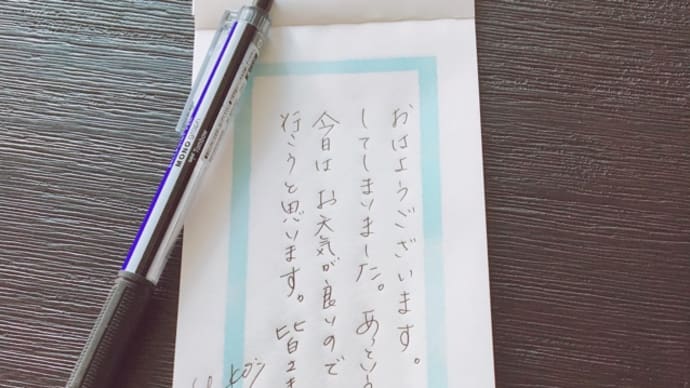 おはようございます。
してしまいました。あっという
今日は お天気が良いので
行こうと思います。皆さま
MONO graph
Tombow